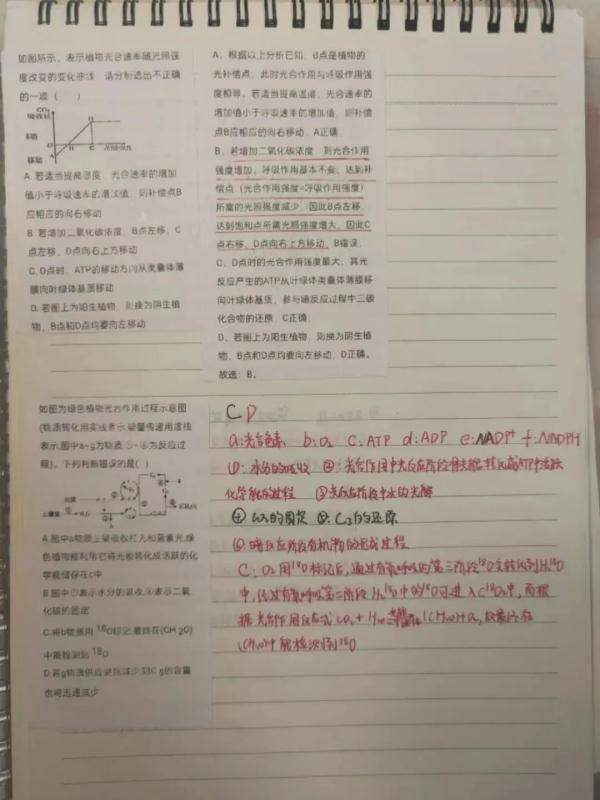 如图所示，表示植物光合速率随光照强
度改变的变化曲线，请分析选出不正确
的一项（ ）
A. 若适当提高温度，光合速率的增加
值小于呼吸速率的增加值，则补偿点B
应相应的向右移动
B. 若增加二氧化碳浓度，B点左移，C
点左移，D点向右上方移动
C. D点时，ATP的移动方向从类囊体薄
膜向叶绿体基质移动
D. 若图上为阳生植物，则换为阴生植
物，B点和D点均要向左移动
A、根据以上分析已知，B点是植物的
光补偿点，此时光合作用与呼吸作用强
度相等。若适当提高温度，光合速率的
增加值小于呼吸速率的增加值，则补偿
点B应相应的向右移动，A正确；
B、若增加二氧化碳浓度，则光合作用
强度增加，呼吸作用基本不变，达到补
偿点（光合作用强度=呼吸作用强度）
所需的光照强度减少，因此B点左移，
达到饱和点所需光照强度增大，因此C
点右移，D点向右上方移动，B错误；
C、D点时的光合作用强度最大，其光
反应产生的ATP从叶绿体类囊体薄膜移
向叶绿体基质，参与暗反应过程中三碳
化合物的还原，C正确；
D、若图上为阳生植物，则换为阴生植
物，B点和D点均要向左移动，D正确。
故选：B。
如图为绿色植物光合作用过程示意图
(物质转化用实线表示,能量传递用虚线
表示,图中a~g为物质,①~⑥为反应过
程)。下列判断错误的是( )
A.图中a物质主要吸收红光和蓝紫光,绿
色植物能利用它将光能转化成活跃的化
学能储存在c中
B.图中①表示水分的吸收,④表示二氧
化碳的固定
C.将b物质用 18O标记,最终在(CH2O)
中能检测到 18O
D.若g物质供应突然减少,则C3的含量
也将迅速减少
CD
a:光合色素 b:O₂ C.ATP d:ADP e:NADP⁺ f:NADPH
①:水分的吸收 ②:光合作用中光反应阶段将光能转化成ATP中活跃
化学能的过程 ③光反应阶段中水的光解
④ CO₂的固定 ⑤:C₃的还原
⑥暗反应阶段有机物的形成过程
C:O₂用¹⁸O标记后,通过有氧呼吸的第三阶段¹⁸O会转化到H₂¹⁸O
中,经过有氧呼吸第二阶段H₂¹⁸O中的¹⁸O可进入C¹⁸O₂中,再根
据光合作用反应式CO₂+H₂O→(CH₂O)+O₂,故最终在
(CH₂O)中能检测到¹⁸O